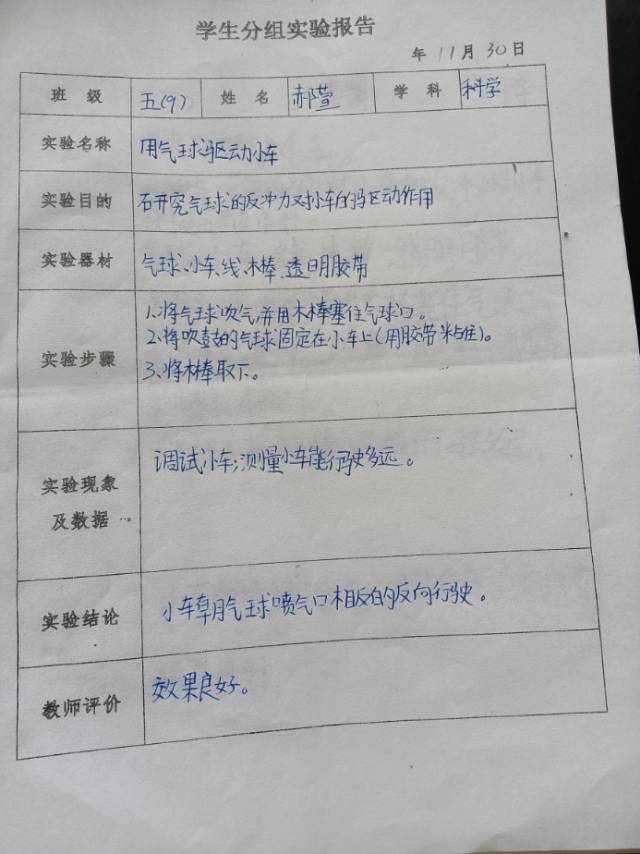 学生分组实验报告
年 11月 30日
班 级 五(9) 姓 名 郝萱 学 科 科学
实验名称 用气球驱动小车
实验目的 研究气球的反冲力对小车的驱动作用
实验器材 气球、小车、线、木棒、透明胶带
实验步骤
1、将气球吹气,并用木棒塞住气球口。
2、将吹鼓的气球固定在小车上(用胶带粘住)。
3、将木棒取下。
实验现象及数据
调试小车;测量小车能行驶多远。
实验结论 小车朝气球喷气口相反的反向行驶。
教师评价 效果良好。